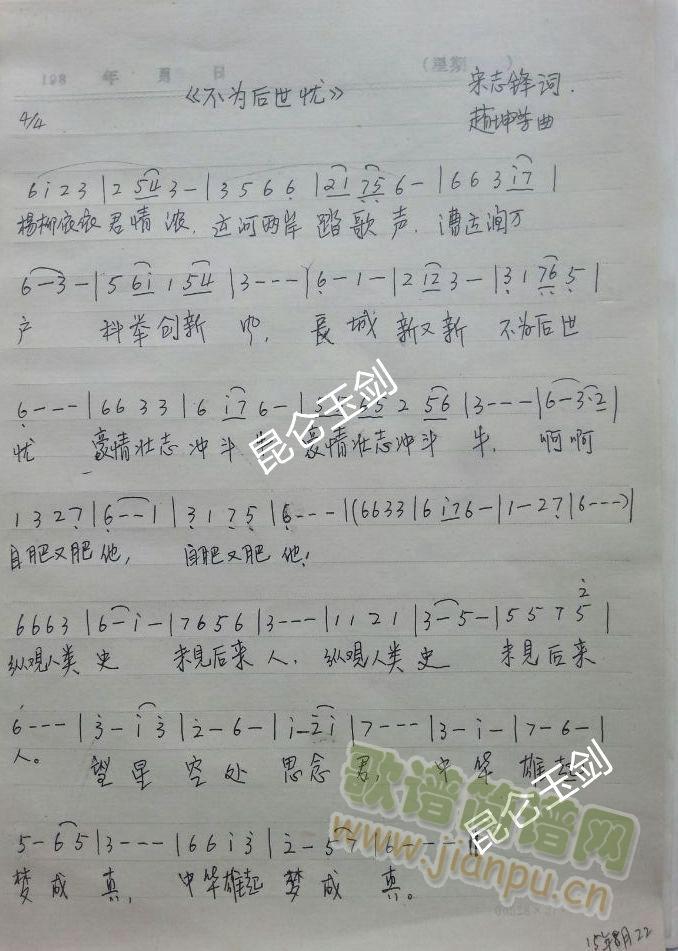 198 年 月 日 (星期 )
《不为后世忧》 宋志锋词.
4/4 赵坤学曲
6 i 2 3 | 2 54 3 - | 3 5 6 6 6 | 21 75 6 - | 6 6 3 i7 |
楊柳依依君情浓, 运河两岸踏歌声. 漕运润万
6 - 3 - | 5 6i 1 54 | 3 - - - | 6 - 1 - | 2 12 3 - | 3 1 76 5 |
产 科举创新 , 長城新又新 不为后世
6 - - - | 6 6 3 3 | 6 i7 6 - | 5 2 56 | 3 - - - | 6 - 3·2 |
忧 豪情壮志冲斗 豪情壮志冲斗牛. 啊啊
1 3 2 7 | 6 - - 1 | 3 1 75 | 6 - - - | (6 6 3 3 | 6 i7 6 - | 1 - 2 7 | 6 - - -) |
自肥又肥他, 自肥又肥他!
6 6 6 3 | 6 - i - | 7 6 5 6 | 3 - - - | 1 1 2 1 | 3 - 5 - | 5 5 7 5 2 |
纵观人类史 未見后来人. 纵观人类史 未見后来
6 - - - | 3 - i 3 | 2 - 6 - | i - 2i | 7 - - - | 3 - i - | 7 - 6 - |
人。 望星空处思念君, 中华雄起
5 - 6 5 | 3 - - - | 6 6 i 3 | 2 - 5 7 | 6 - - - ||
梦成真, 中华雄起梦成真。
昆仑玉剑
昆仑玉剑
歌谱简谱网
www.jianpu.cn
15年8月22